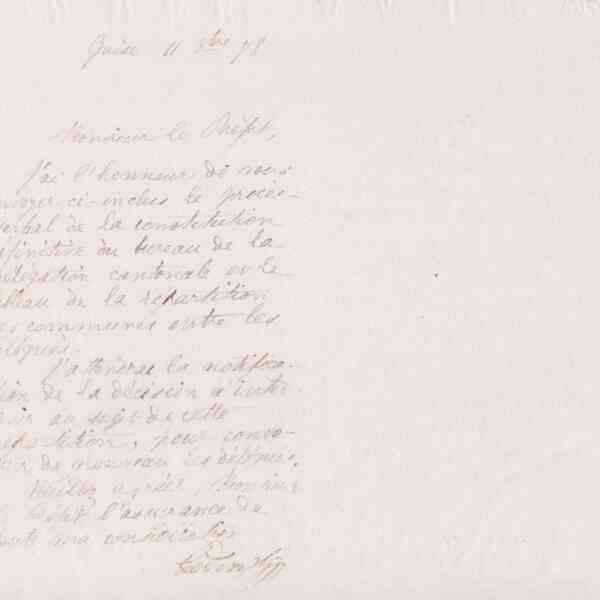 Guise 11 8bre 78
Monsieur le Préfet,
J'ai l'honneur de vous
nvoyer ci-inclus le procès-
verbal de la constitution
éfinitive du bureau de la
élégation cantonale et le
bleau de la répartition
es communes entre les
légués.
J'attendrai la notifica-
tion de la décision à inter-
enir au sujet de cette
répartition, pour convo-
uer de nouveau les délégués.
Veuillez agréer, Monsieur
le Préfet l'assurance de
oute ma considération